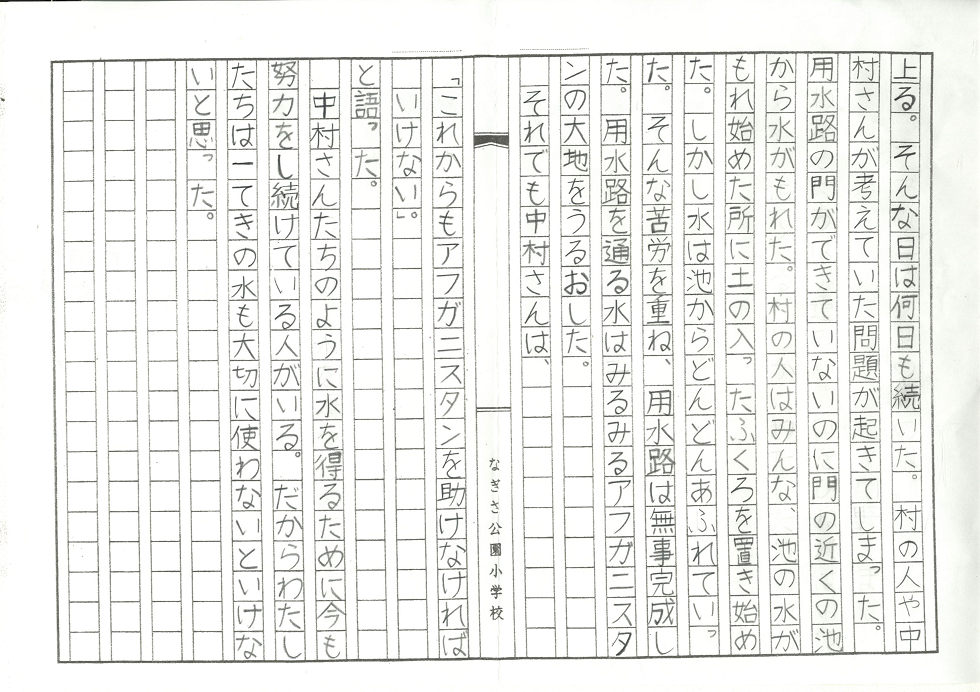 上る。そんな日は何日も続いた。村の人や中
村さんが考えていた問題が起きてしまった。
用水路の門ができていないのに門の近くの池
から水がもれた。村の人はみんな、池の水が
もれ始めた所に土の入ったふくろを置き始め
た。しかし水は池からどんどんあふれていっ
た。そんな苦労を重ね、用水路は無事完成し
た。用水路を通る水はみるみるアフガニスタ
ンの大地をうるおした。
それでも中村さんは、
なぎさ公園小学校
「これからもアフガニスタンを助けなければ
いけない」。
と語った。
中村さんたちのように水を得るために今も
努力をし続けている人がいる。だからわたし
たちは一てきの水も大切に使わないといけな
いと思った。